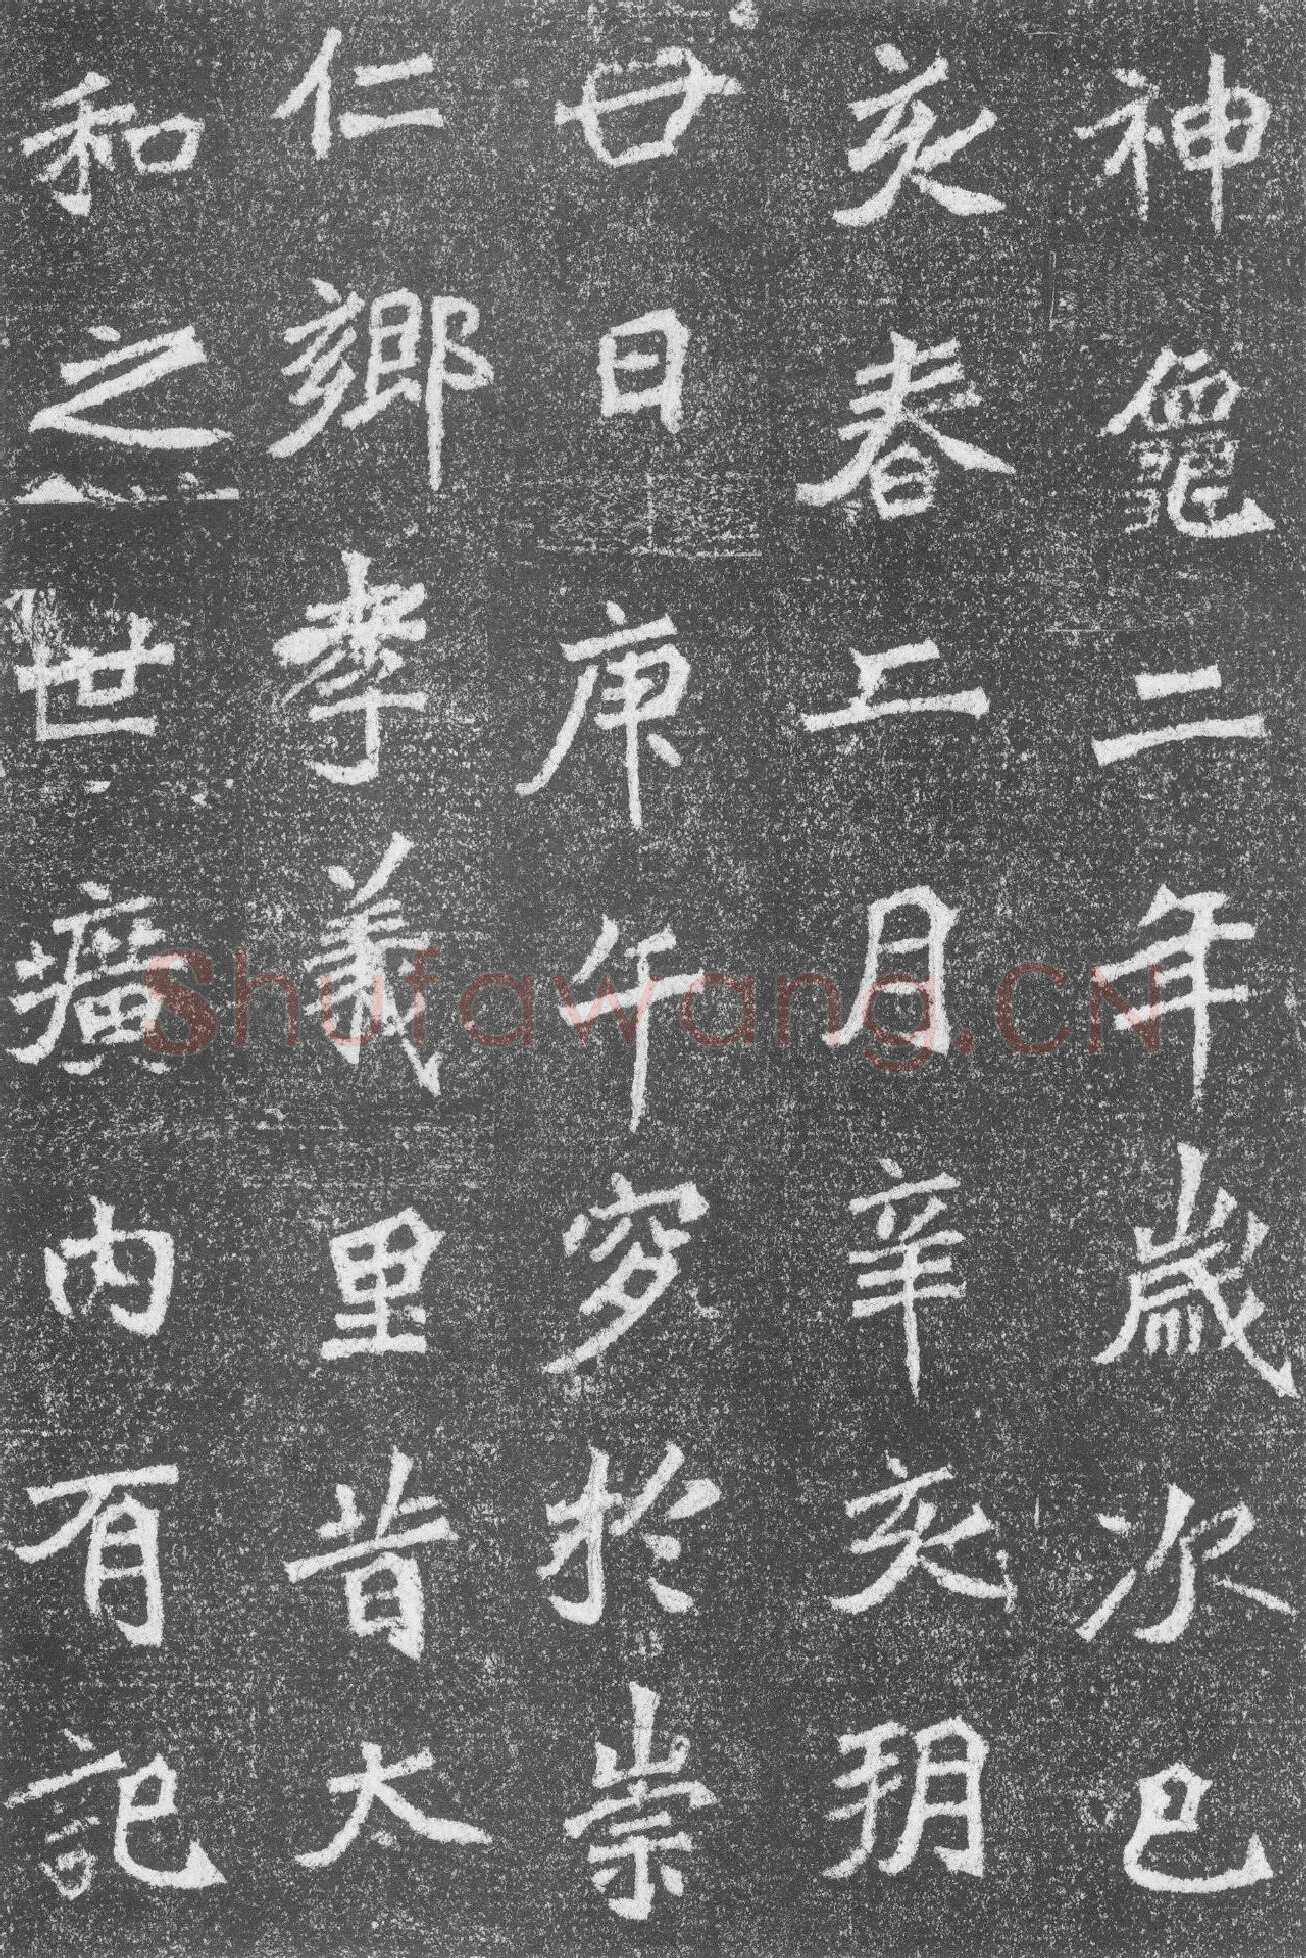 神龜二年歲次己
亥春二月辛亥朔
廿日庚午窆於崇
仁鄉孝義里昔太
和之世壙內有記
Shufawang.CN